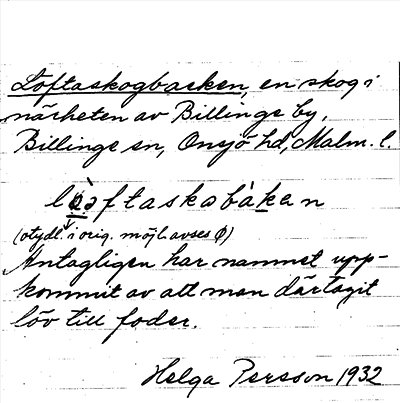 Löftaskogbacken, en skog i
närheten av Billinge by,
Billinge sn, Onsjö hd, Malm. l.
løəftaskəbàkan
(otydl. i orig. möjl. avses ø)
Antagligen har namnet upp-
kommit av att man där tagit
löv till foder.
Helga Persson 1932